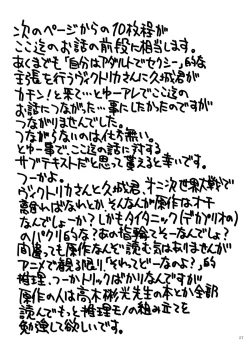 次のページからの10枚程が
ここ迄のお話の前段に相当します。
あくまでも「自分はアダルトでセクシー」的な
主張を行うヴィクトリカさんに久城君が
カチン!と来て…とゆーアレでここ迄の
お話につながった…事にしたかったのですが
つながりませんでした。
つながらないのは仕方無い。
とゆー事で、ここ迄の話に対する
サブテキストだと思って貰えると幸いです。
つーかよ。
ヴィクトリカさんと久城君、第二次世界大戦で
離ればなれとかそんなんが原作はオチ
なんでしょーか?しかもタイタニック(デカプリオの)
のパクリ的な?あの指輪でそーなんでしょ?
間違っても原作なんぞ読む気はありませんが
アニメで観る限り、「それってどーなのよ?」的
推理、つーかトリックばかりなんですが
原作の人は高木彬光先生の本とか全部
読んで、もっと推理モノの組み立てを
勉強して欲しいです。